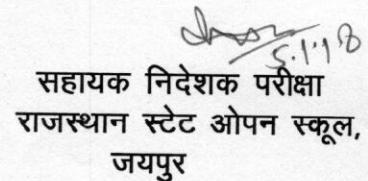 5.1.18
सहायक निदेशक परीक्षा
राजस्थान स्टेट ओपन स्कूल,
जयपुर